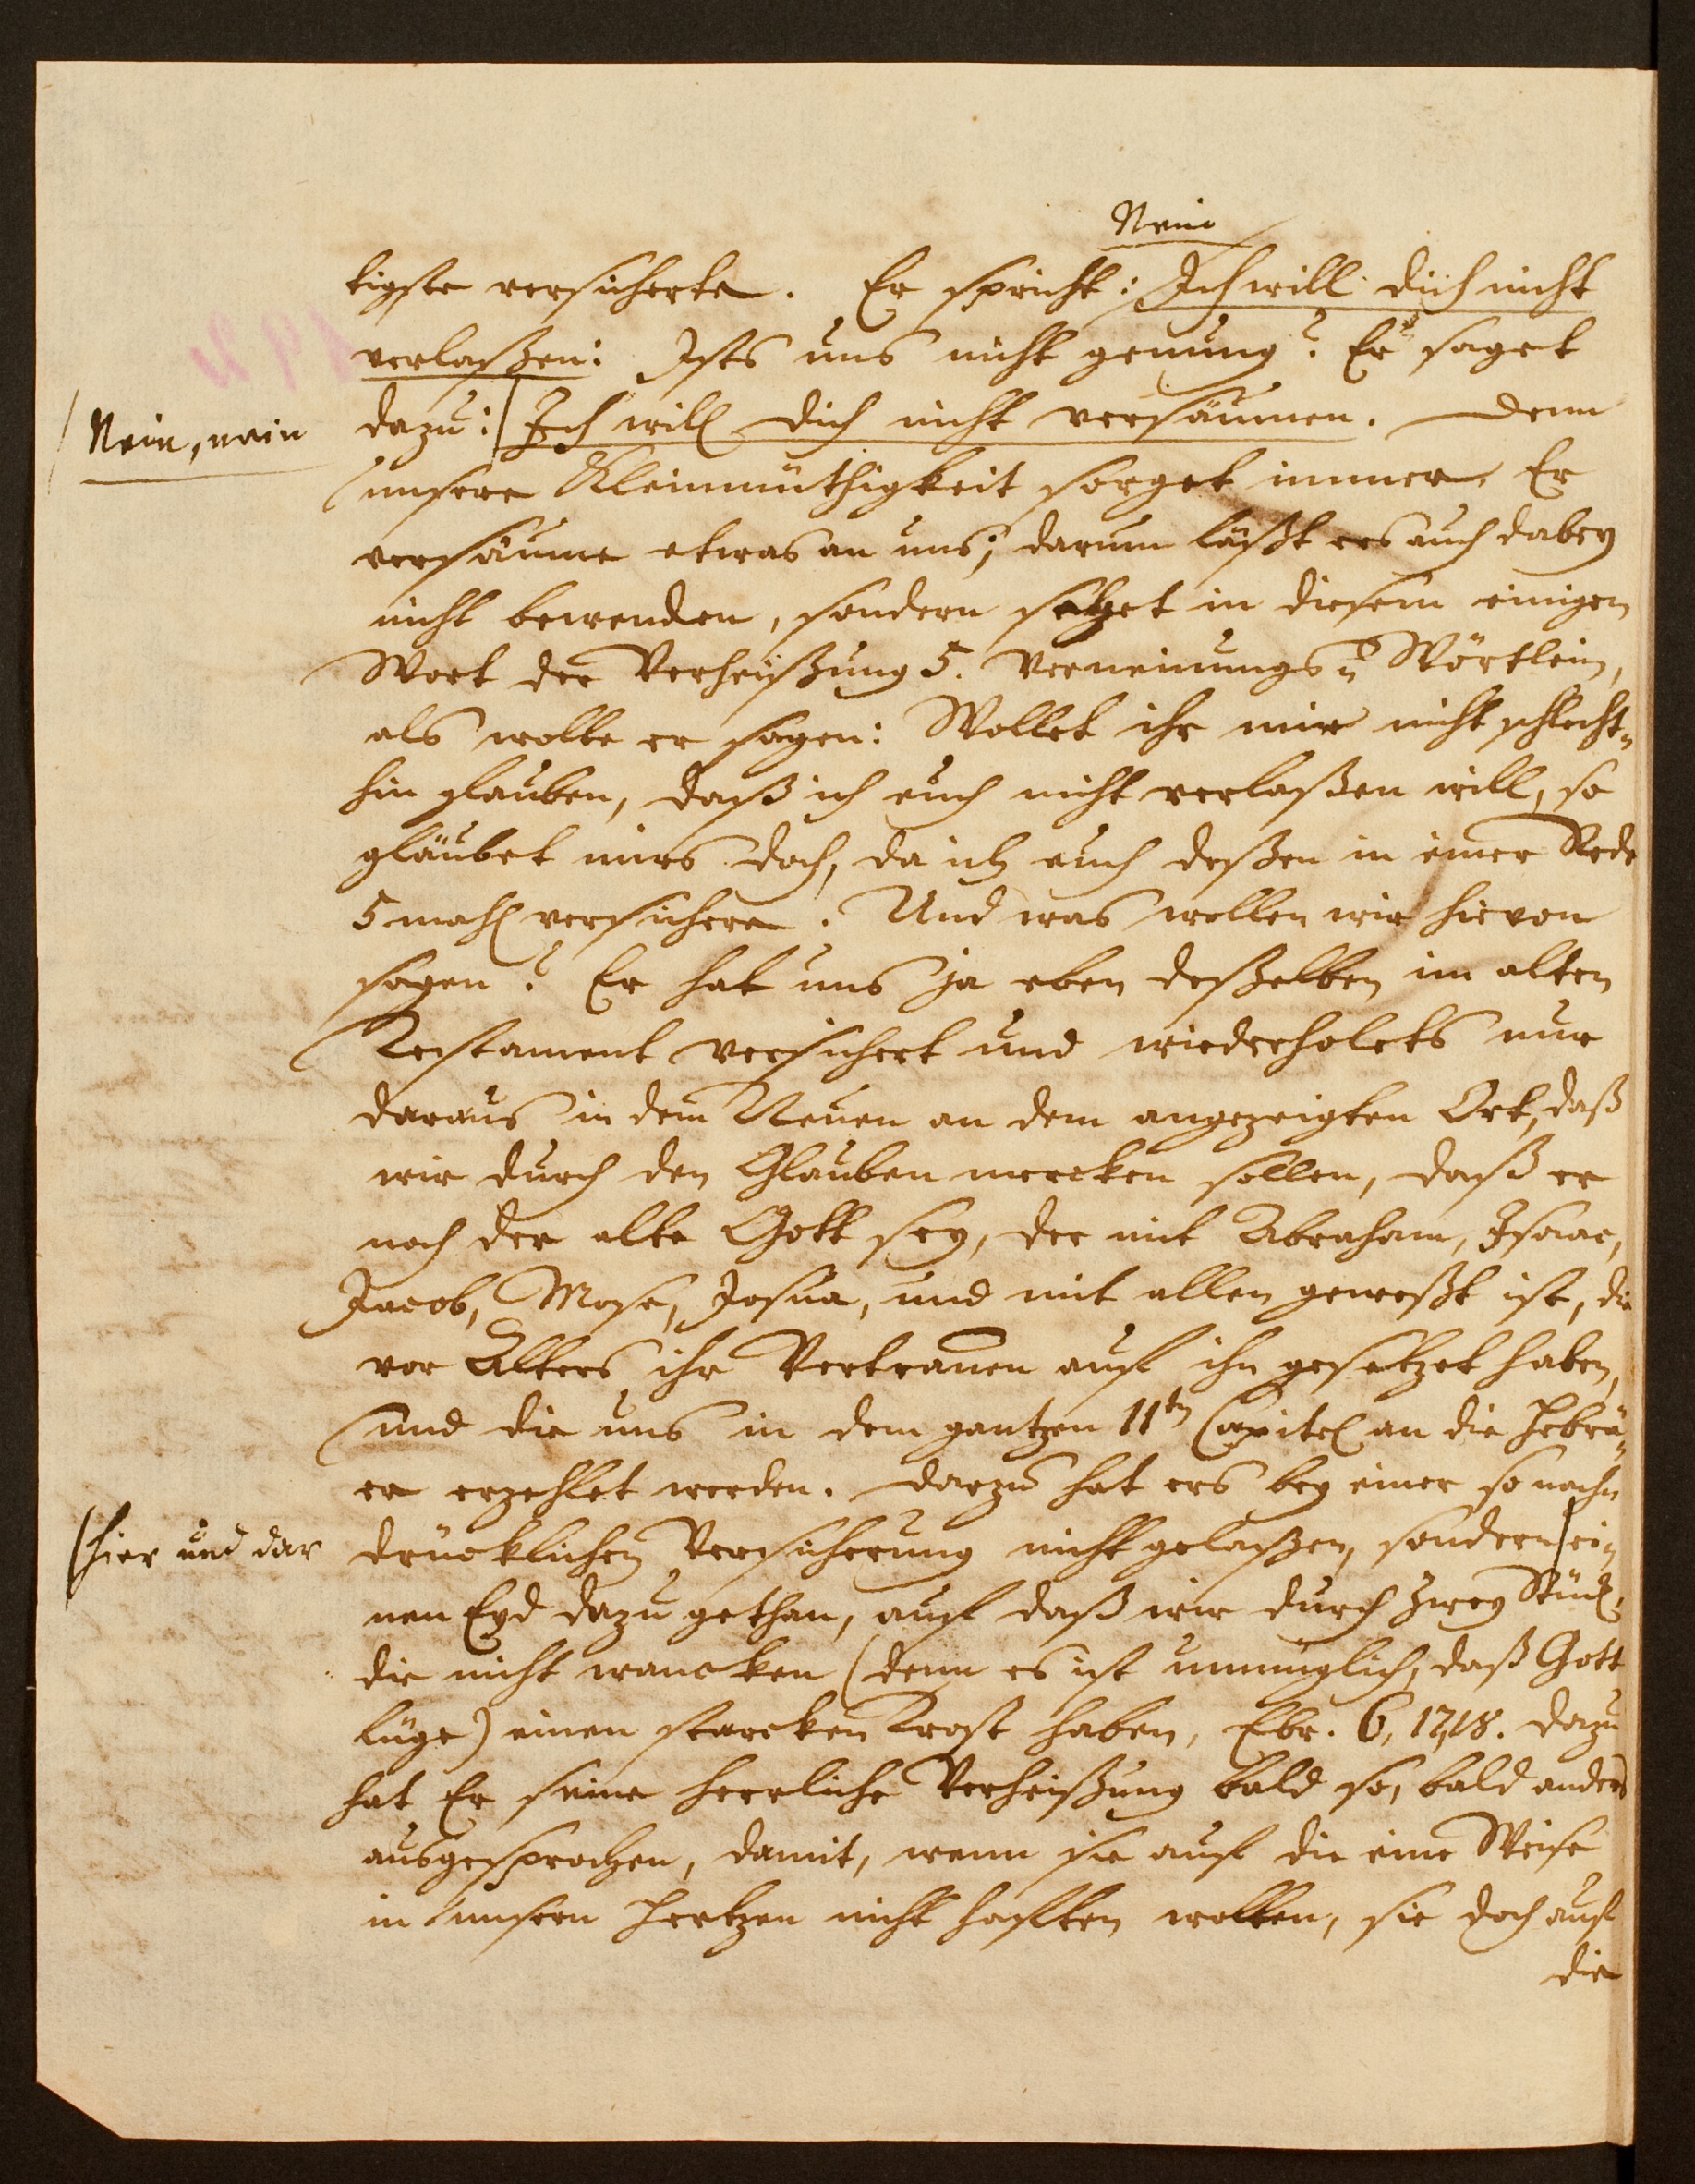 Nein
tigste versicherte. Er spricht: Ich will dich nicht
verlaßen: Ists uns nicht genung? Er saget
Nein, nein
dazu: Ich will dich nicht versäumen. Denn
unsere Kleinmüthigkeit sorget immer, Er
versäume etwas an uns; darum läßt ers auch dabey
nicht bewenden, sondern setzet in diesem einigen
Wort der Verheißung 5. Verneinungs- Wörtlein,
als wolte er sagen: Wollet ihr mir nicht schlecht-
hin glauben, daß ich euch nicht verlaßen will, so
gläubet mirs doch, da ich euch deßen in einer Rede
5 mahl versichere. Und was wollen wir hievon
sagen? Er hat uns ja eben deßelben im alten
Testament versichert und wiederholets nur
daraus in dem Neuen an dem angezeigten Ort, daß
wir durch den Glauben mercken sollen, daß er
noch der alte Gott sey, der mit Abraham, Isaac,
Jacob, Mose, Josua, und mit allen geweßt ist, die
vor Alters ihr Vertrauen auf ihn gesetzet haben,
und die uns in dem gantzen 11ten Capitel an die Hebrä-
er erzehlet werden. Darzu hat ers bey einer so nach-
hier und dar
drücklichen Versicherung nicht gelaßen, sondern ei-
nen Eyd dazu gethan, auf daß wir durch zwey Stück,
die nicht wancken (denn es ist unmüglich, daß Gott
lüge) einen starcken Trost haben, Ebr. 6, 17,18. Dazu
hat Er seine herrliche Verheißung bald so, bald anders
ausgesprochen, damit, wenn sie auf die eine Weise
in unsern Hertzen nicht hafften wolten, sie doch auf
die